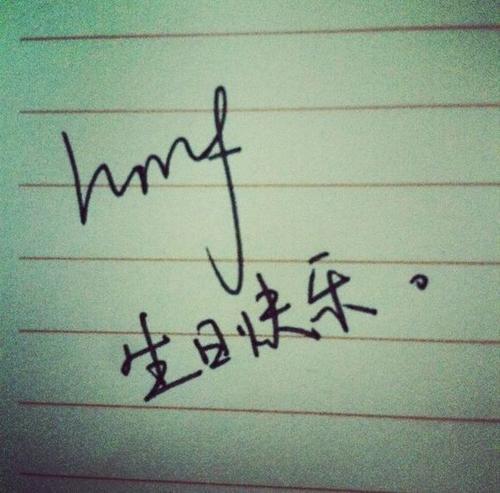 hmf
生日快乐。